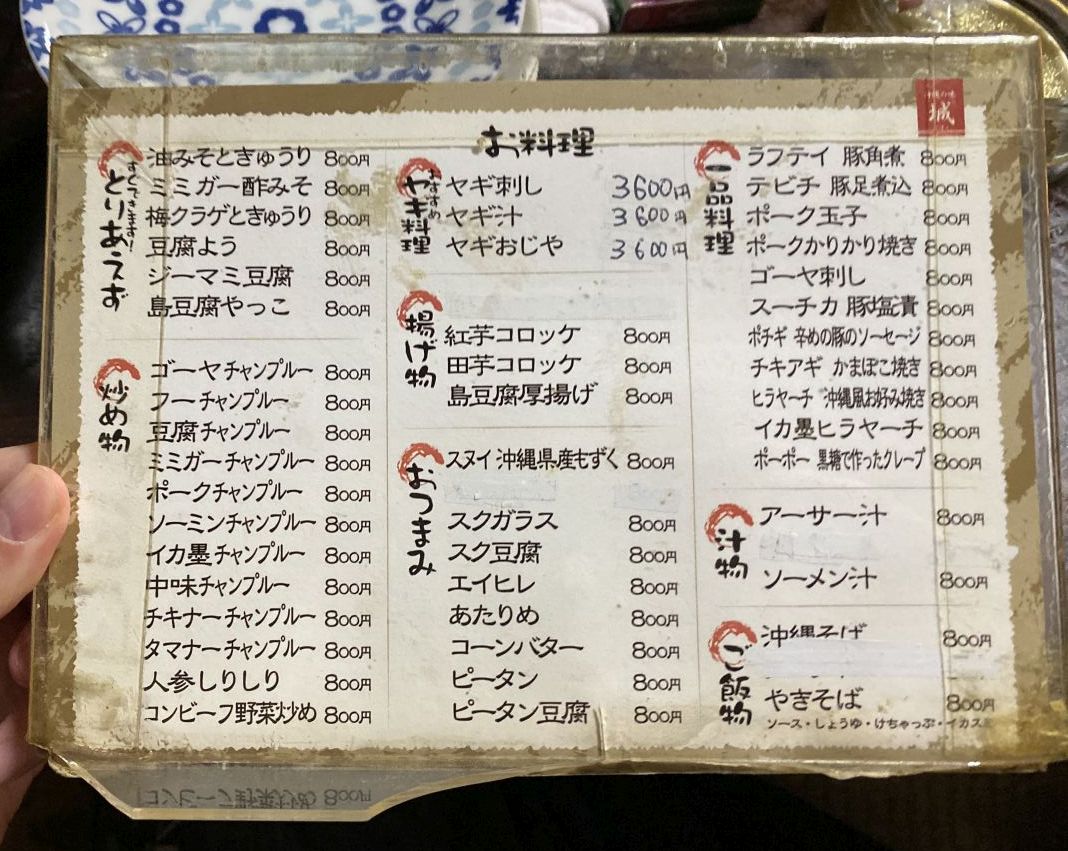 沖縄の味
城
お料理
すぐできます！
とりあえず
油みそときゅうり 800円
ミミガー酢みそ 800円
梅クラゲときゅうり 800円
豆腐よう 800円
ジーマミ豆腐 800円
島豆腐やっこ 800円
炒め物
ゴーヤチャンプルー 800円
フーチャンプルー 800円
豆腐チャンプルー 800円
ミミガーチャンプルー 800円
ポークチャンプルー 800円
ソーミンチャンプルー 800円
イカ墨チャンプルー 800円
中味チャンプルー 800円
チキナーチャンプルー 800円
タマナーチャンプルー 800円
人参しりしり 800円
コンビーフ野菜炒め 800円
おすすめ
ヤギ料理
ヤギ刺し 3600円
ヤギ汁 3600円
ヤギおじや 3600円
揚げ物
紅芋コロッケ 800円
田芋コロッケ 800円
島豆腐厚揚げ 800円
おつまみ
スヌイ 沖縄県産もずく 800円
スクガラス 800円
スク豆腐 800円
エイヒレ 800円
あたりめ 800円
コーンバター 800円
ピータン 800円
ピータン豆腐 800円
一品料理
ラフテイ 豚角煮 800円
テビチ 豚足煮込 800円
ポーク玉子 800円
ポークかりかり焼き 800円
ゴーヤ刺し 800円
スーチカ 豚塩漬 800円
ポチギ 辛めの豚のソーセージ 800円
チキアギ かまぼこ焼き 800円
ヒラヤーチ 沖縄風お好み焼き 800円
イカ墨ヒラヤーチ 800円
ポーポー 黒糖で作ったクレープ 800円
汁物
アーサー汁 800円
ソーメン汁 800円
ご飯物
沖縄そば 800円
やきそば 800円
ソース・しょうゆ・けちゃっぷ・イカスミ